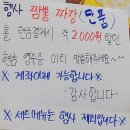 행사 짬뽕 짜장 (단품)
홀 현금결제시 각 2,000원 할인
현금 영수증 미리 말씀해주세요~^^
※ 계좌이체 가능합니다 ※
- 감사합니다 -
※ 세트메뉴는 행사 제외입니다 ※